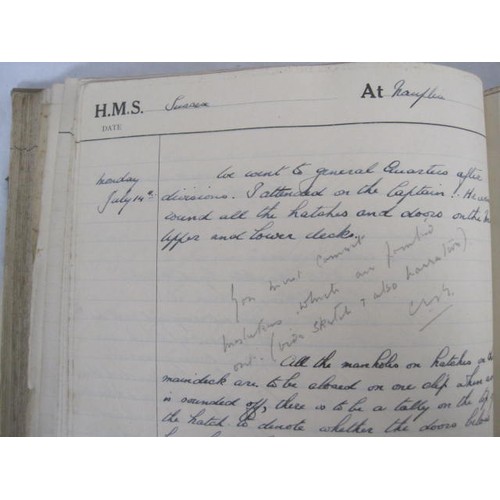 H.M.S. Sussex At Nauplia
DATE
Monday
July 14th
We went to general Quarters after
divisions. I attended on the Captain. He
round all the hatches and doors on the
upper and lower decks.
You must correct
mistakes which are pointed
out. (vide sketch & also narration)
All the manholes on hatches on
maindeck are to be closed on one clip when
is sounded off, there is to be a tally on the
the hatch to denote whether the doors below